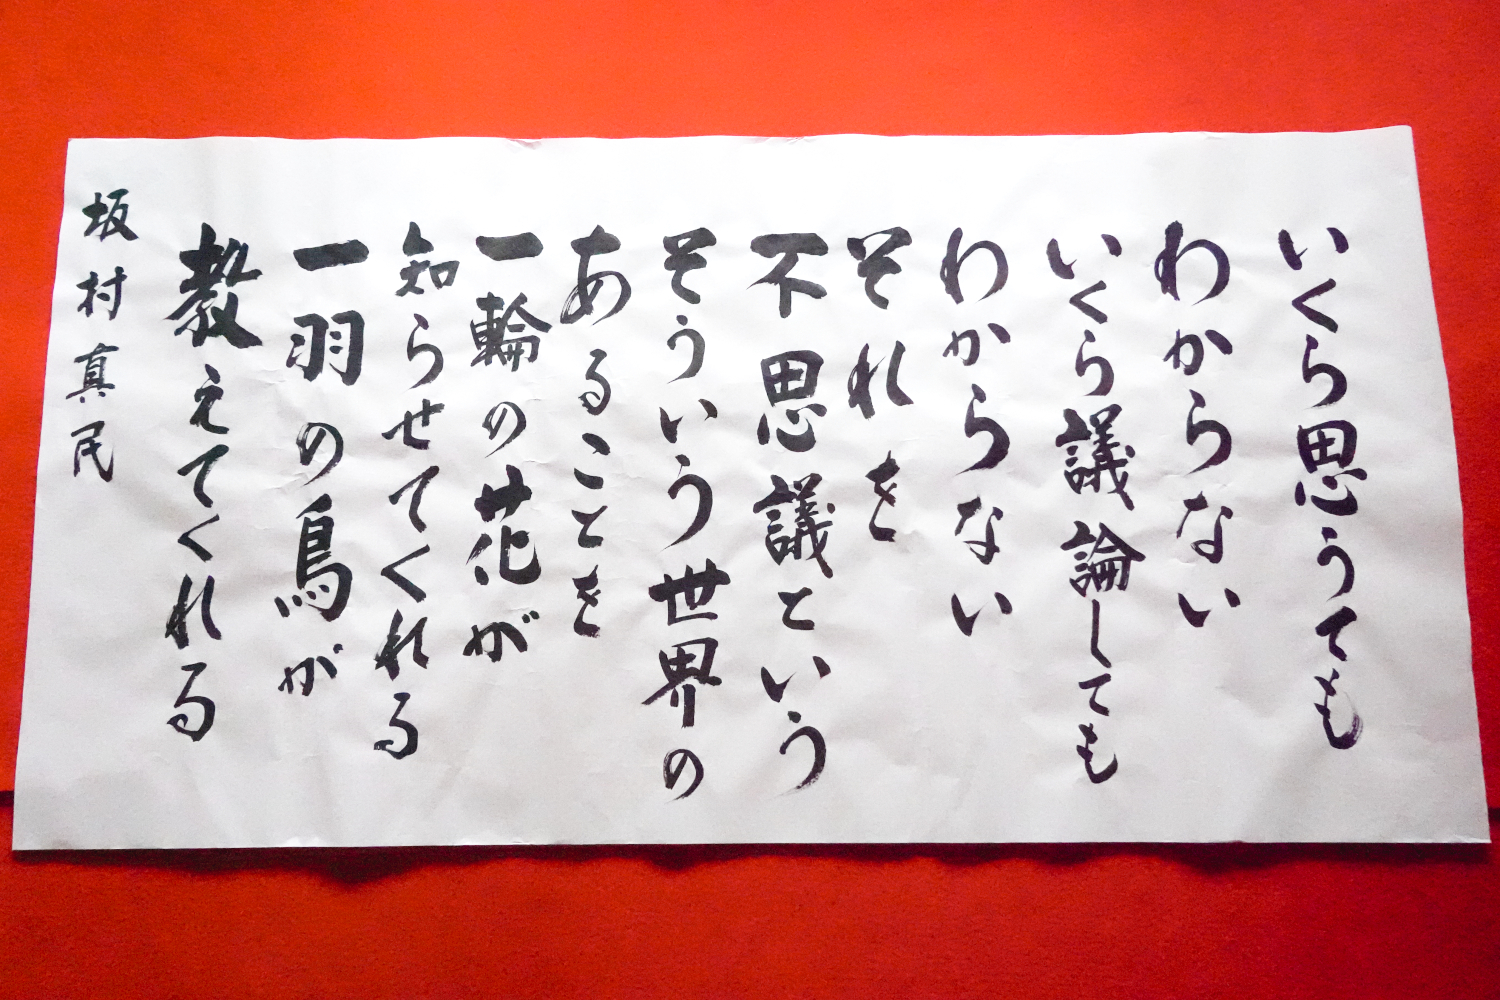 いくら思うても
わからない
いくら議論しても
わからない
それを
不思議という
そういう世界の
あることを
一輪の花が
知らせてくれる
一羽の鳥が
教えてくれる
坂村真民